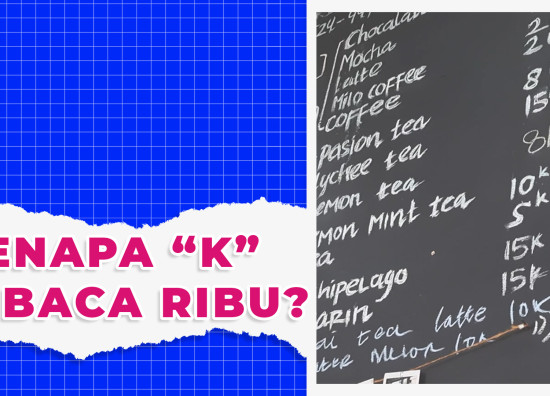 ENAPA “K”
BACA RIBU?
24-
Chocolate
Mocha
Latte
Milo COFFEE 8
COFFEE 15
Pasion tea
lychee tea 8
emon tea 10K
mon Mint tea 5K
a 15K
hipelago 15K
ARIN
ai tea latte 10K
Melon 10K